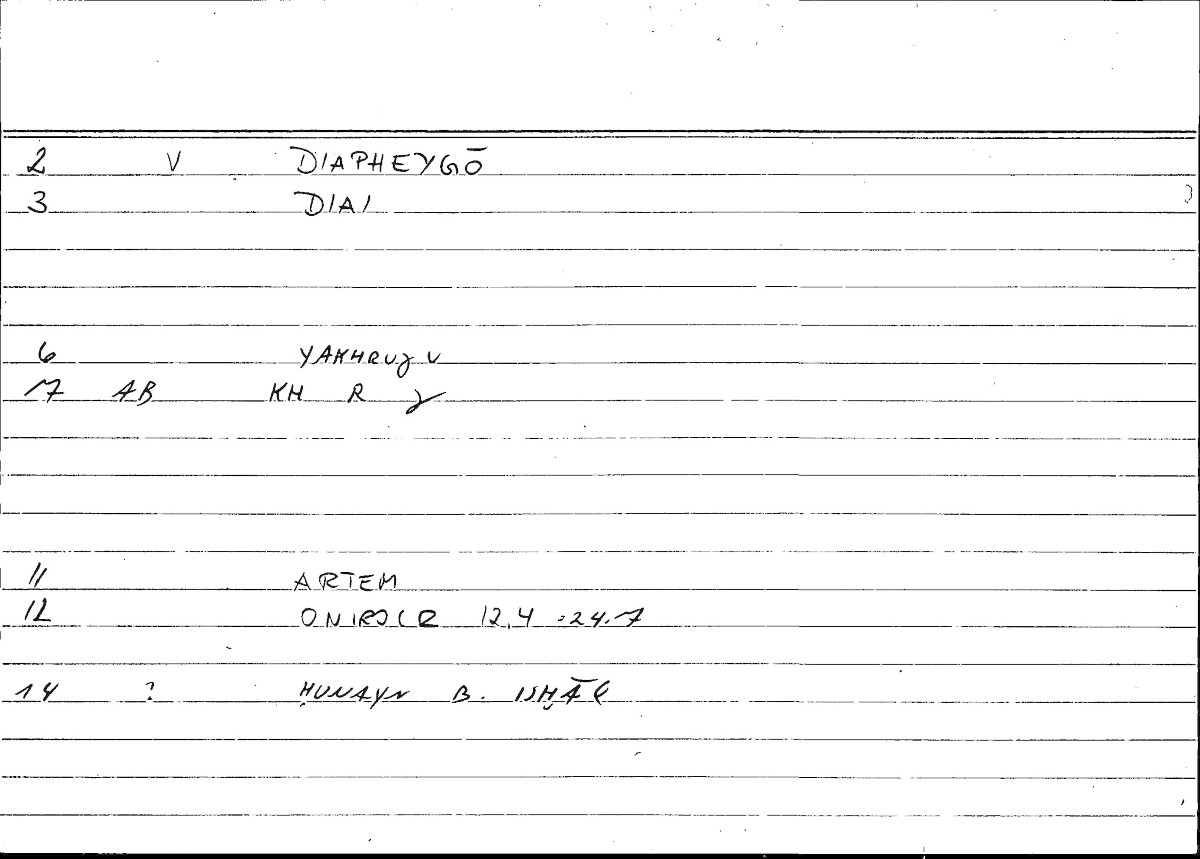 2 V DIAPHEYGŌ
3 DIAI
6 YAKHRUJ U
7 AB KH R J
11 ARTEM
12 ONIROCR 12,4 = 24.7
14 ? ḤUNAYN B. ISḤĀQ